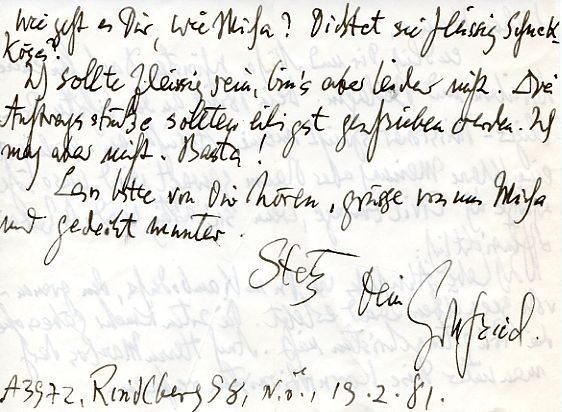 wie geht es Dir, wie Misa? Dichtet sie fleissig Schneck-
Köge?
Ich sollte fleissig sein, bin's aber leider nicht. Drei
Auftragsstücke sollten eiligst geschrieben werden. Ich
mag aber nicht. Basta!
Lass bitte von Dir hören, grüsse von uns Misa
und gedeiht munter.
Stets
Dein
Gottfried.
A3972, Rindlberg 98, N.Ö., 19.2.81.